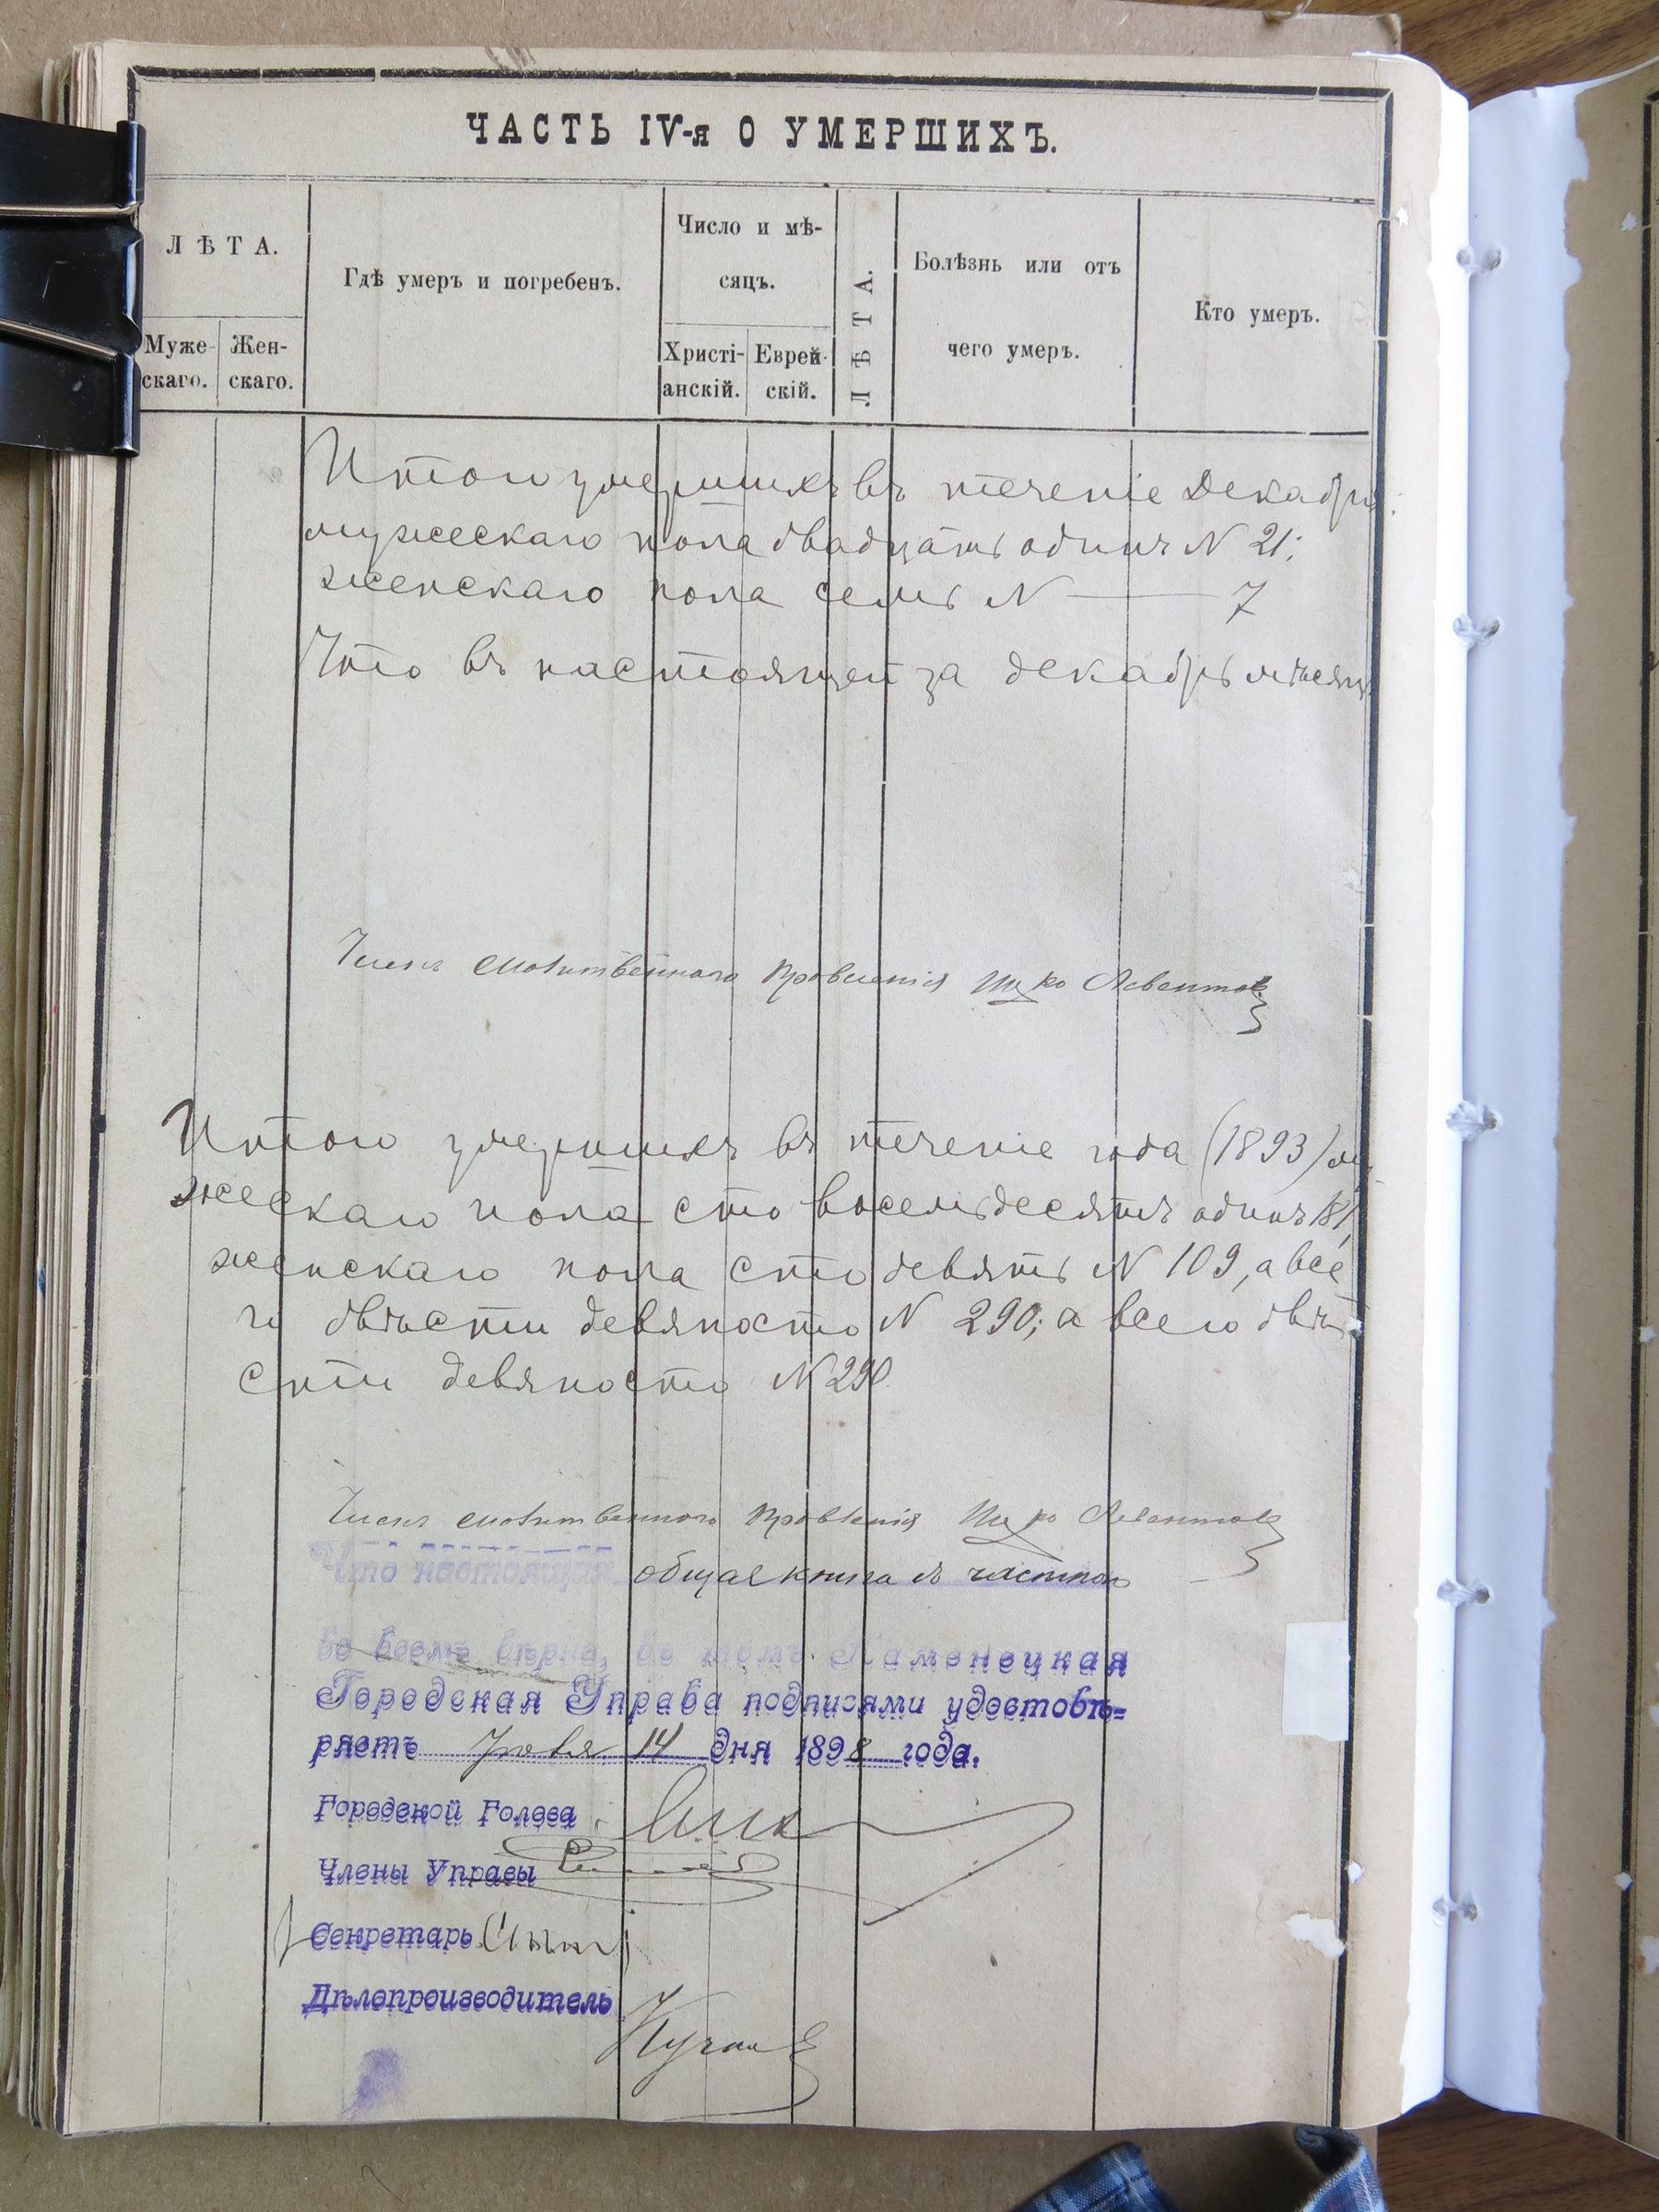 ЧАСТЬ IV-я О УМЕРШИХЪ.
ЛѢТА.
Муже-
скаго.
Жен-
скаго.
Гдѣ умеръ и погребенъ.
Число и мѣ-
сяцъ.
Христі-
анскій.
Еврей-
скій.
ЛѢТА.
Болѣзнь или отъ
чего умеръ.
Кто умеръ.
Итого умершихъ въ теченіе Декабря:
мужескаго пола двадцать одинъ N 21;
женскаго пола семь N — 7
Что въ настоящей за декабрь мѣсяцъ
Членъ молитвеннаго Правленія Ицко
Итого умершихъ въ теченіе года (1893) му
жескаго пола сто восемьдесятъ одинъ 181,
женскаго пола сто девять N 109, а все
го двѣсти девяносто N 290; а всего двѣ
сти девяносто N 290.
Членъ молитвенного Правленія Ицко
Что настоящая общая книга съ частною
во всемъ вѣрна, въ томъ Каменецкая
Городская Управа подписями удостовѣ=
ряетъ 14 дня 1898 года.
Городской Голова
Члены Управы
Секретарь
Дѣлопроизводитель